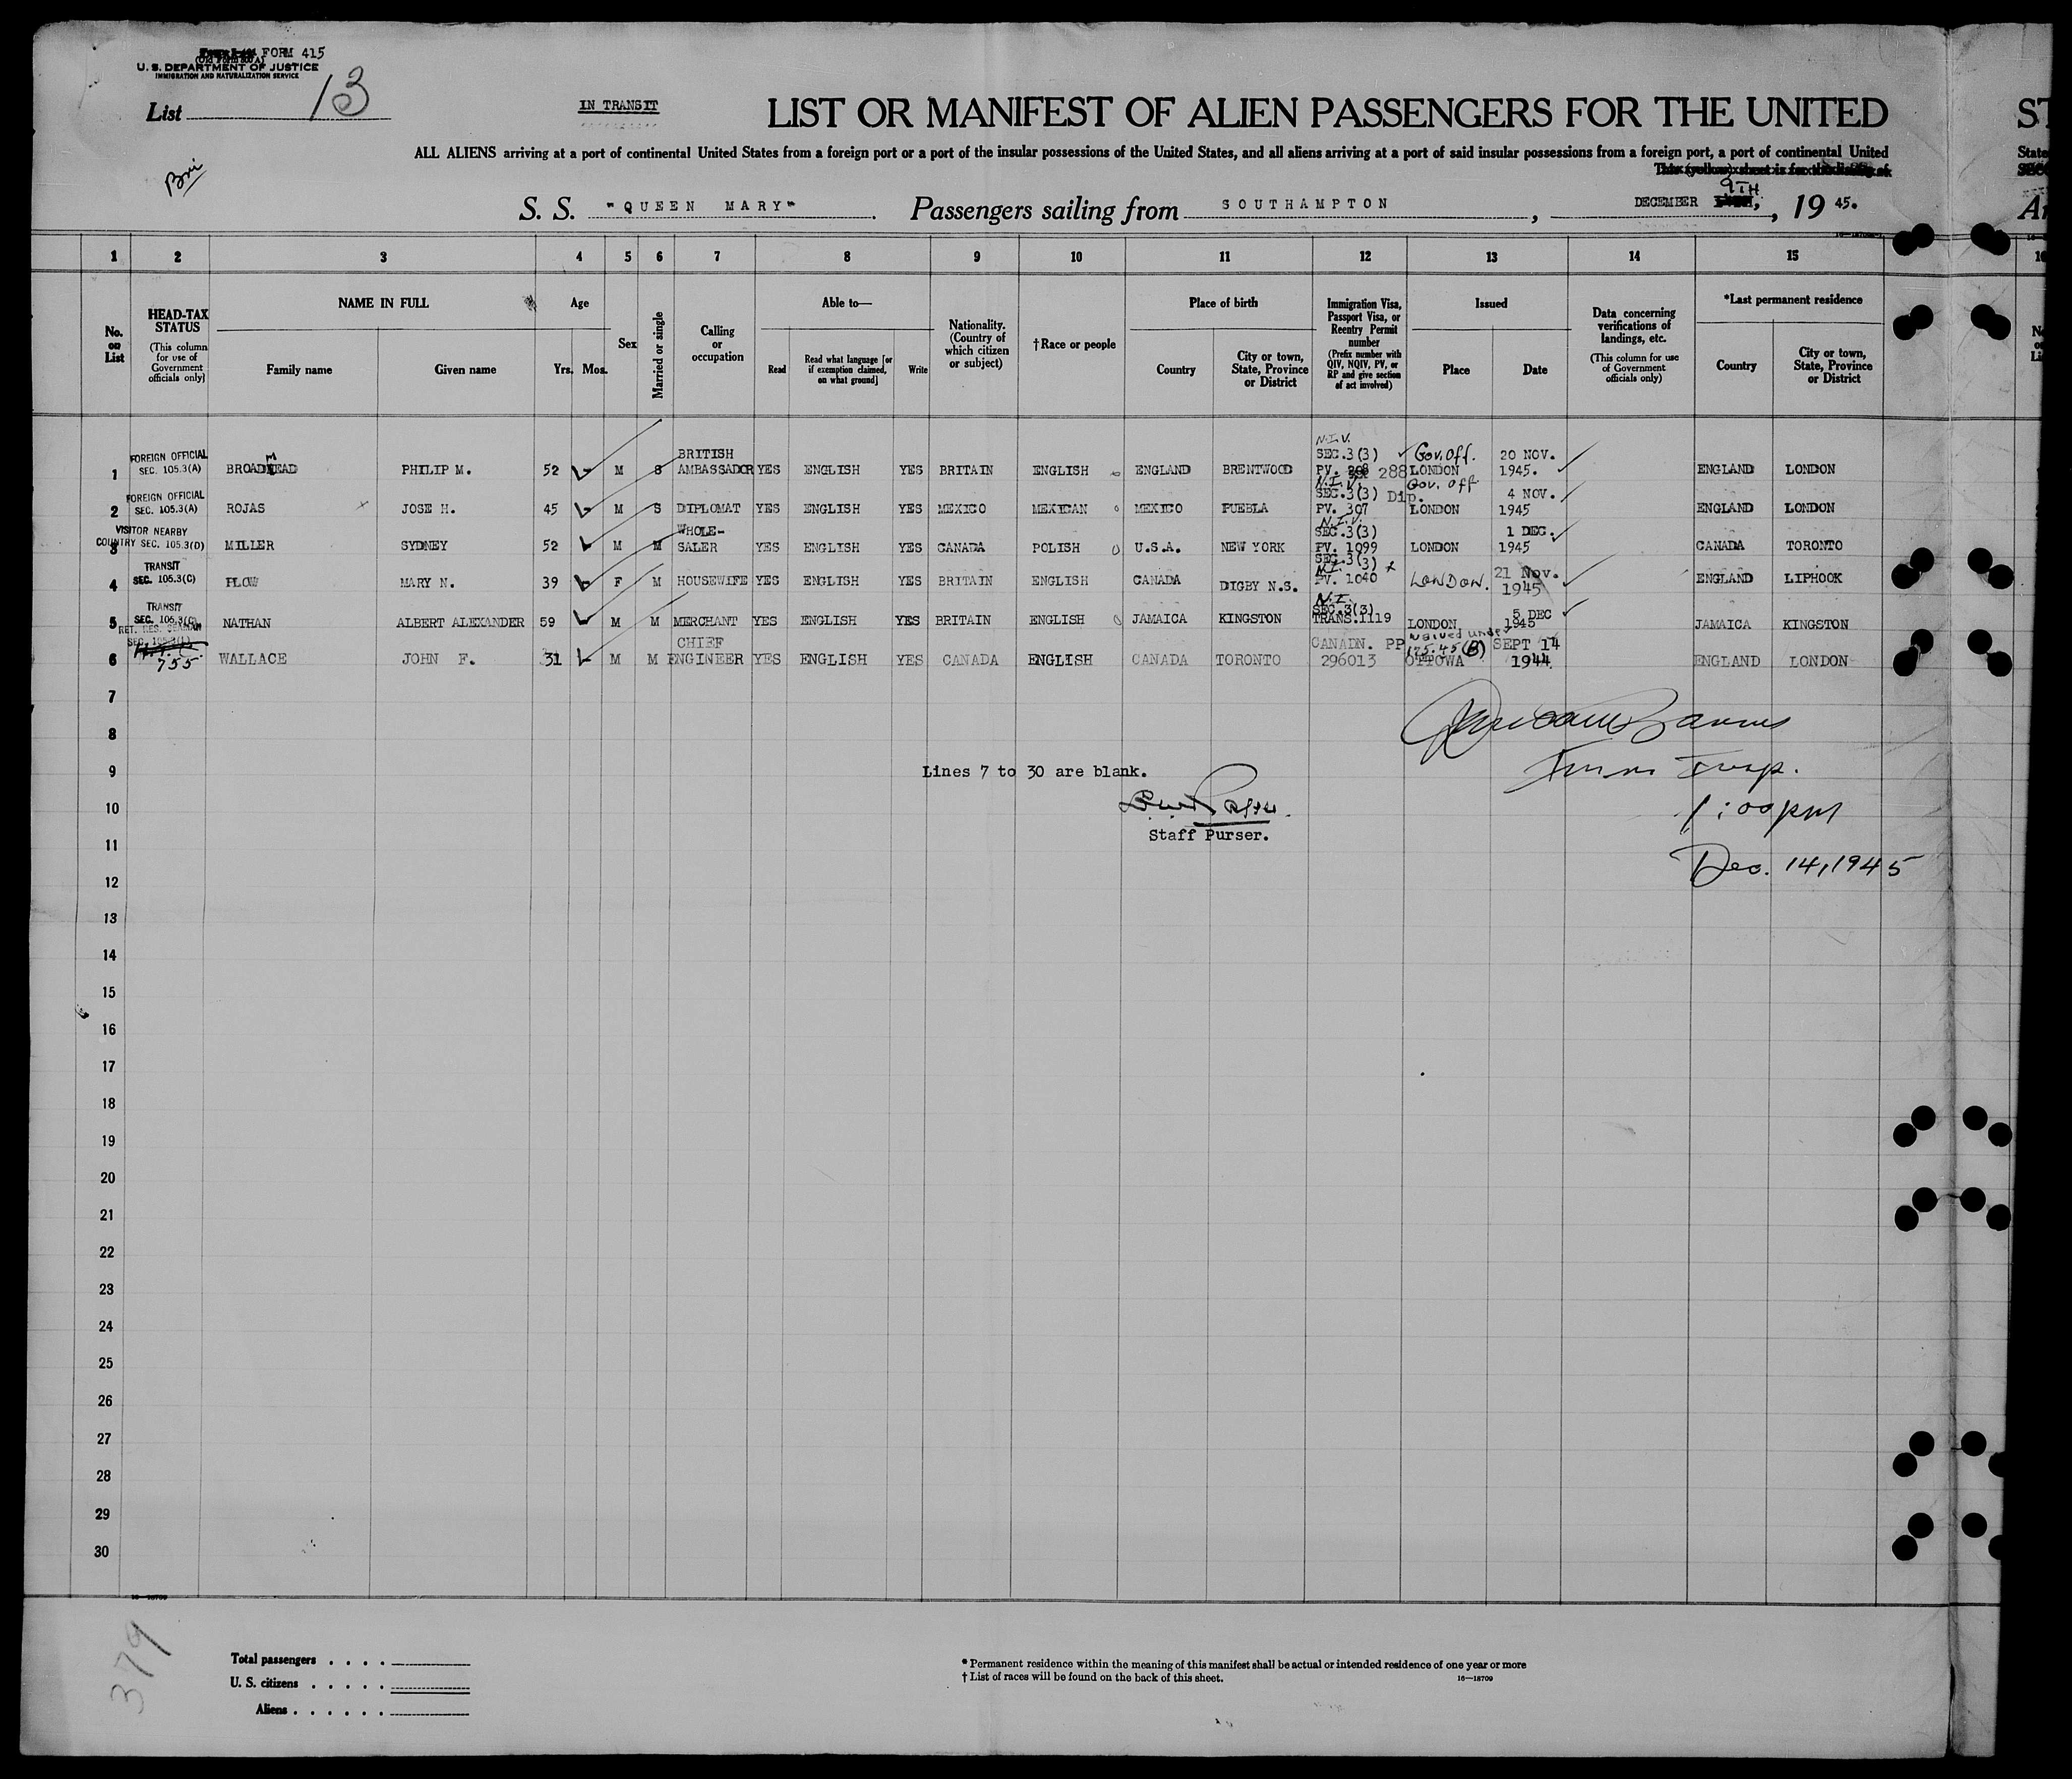 FORM 415
U. S. DEPARTMENT OF JUSTICE
IMMIGRATION AND NATURALIZATION SERVICE
List 13
IN TRANSIT
LIST OR MANIFEST OF ALIEN PASSENGERS FOR THE UNITED
ST
ALL ALIENS arriving at a port of continental United States from a foreign port or a port of the insular possessions of the United States, and all aliens arriving at a port of said insular possessions from a foreign port, a port of continental United
State
S. S. "QUEEN MARY". Passengers sailing from SOUTHAMPTON, DECEMBER 9TH, 1945.
1 2 3 4 5 6 7 8 9 10 11 12 13 14 15
No. on List
HEAD-TAX STATUS
(This column for use of Government officials only)
NAME IN FULL
Family name
Given name
Age
Yrs. Mos.
Sex
Married or single
Calling or occupation
Able to—
Read
Read what language [or if exemption claimed, on what ground]
Write
Nationality. (Country of which citizen or subject)
†Race or people
Place of birth
Country
City or town, State, Province or District
Immigration Visa, Passport Visa, or Reentry Permit number
(Prefix number with QIV, NQIV, PV, or RP and give section of act involved)
Issued
Place
Date
Data concerning verifications of landings, etc.
(This column for use of Government officials only)
*Last permanent residence
Country
City or town, State, Province or District
FOREIGN OFFICIAL SEC. 105.3(A)
1 BROADMEAD PHILIP M. 52 M S BRITISH AMBASSADOR YES ENGLISH YES BRITAIN ENGLISH ENGLAND BRENTWOOD N.I.V. SEC.3(3) PV. 288 Gov. Off. LONDON 20 NOV. 1945. ENGLAND LONDON
FOREIGN OFFICIAL SEC. 105.3(A)
2 ROJAS JOSE H. 45 M S DIPLOMAT YES ENGLISH YES MEXICO MEXICAN MEXICO PUEBLA N.I.V. SEC.3(3) Dip. PV. 307 Gov. Off LONDON 4 NOV. 1945 ENGLAND LONDON
VISITOR NEARBY COUNTRY SEC. 105.3(D)
3 MILLER SYDNEY 52 M M WHOLE-SALER YES ENGLISH YES CANADA POLISH U.S.A. NEW YORK N.I.V. SEC.3(3) PV. 1099 LONDON 1 DEC. 1945 CANADA TORONTO
TRANSIT SEC. 105.3(C)
4 PLOW MARY N. 39 F M HOUSEWIFE YES ENGLISH YES BRITAIN ENGLISH CANADA DIGBY N.S. SEC.3(3) N.I. PV. 1040 LONDON. 21 Nov. 1945 ENGLAND LIPHOOK
TRANSIT SEC. 105.3(C)
5 NATHAN ALBERT ALEXANDER 59 M M MERCHANT YES ENGLISH YES BRITAIN ENGLISH JAMAICA KINGSTON N.I. SEC.3(3) TRANS.1119 LONDON 5 DEC 1945 JAMAICA KINGSTON
755
6 WALLACE JOHN F. 31 M M CHIEF ENGINEER YES ENGLISH YES CANADA ENGLISH CANADA TORONTO CANADN. PP 296013 waived under 175.45(B) OTTOWA SEPT 14 1944 ENGLAND LONDON
7
8
9
Lines 7 to 30 are blank.
10
Staff Purser.
1:00pm
11
Dec. 14, 1945
12
13
14
15
16
17
18
19
20
21
22
23
24
25
26
27
28
29
30
16—18709
379
Total passengers . . . .
U. S. citizens . . . . .
Aliens . . . . . .
* Permanent residence within the meaning of this manifest shall be actual or intended residence of one year or more
† List of races will be found on the back of this sheet.
16—18709